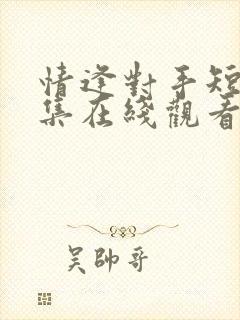 情逢對手短
集在綫觀看
吴帥哥